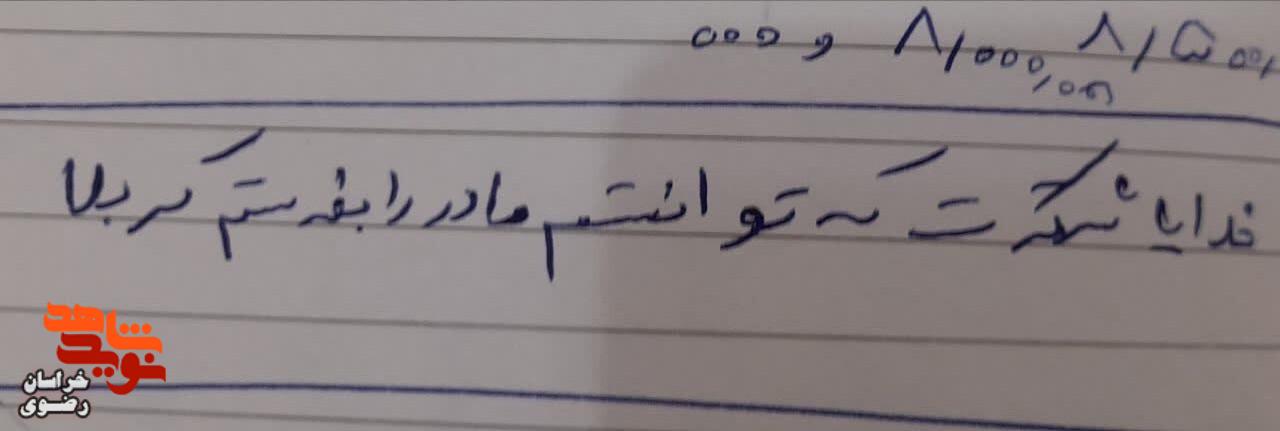 ۸/۵۰۰/ ۸/۰۰۰/۰۰۰ و ۰۰۰
خدایا شکرت که توانستم مادر را بفرستم کربلا
شاهد
نوید
خراسان
رضوی